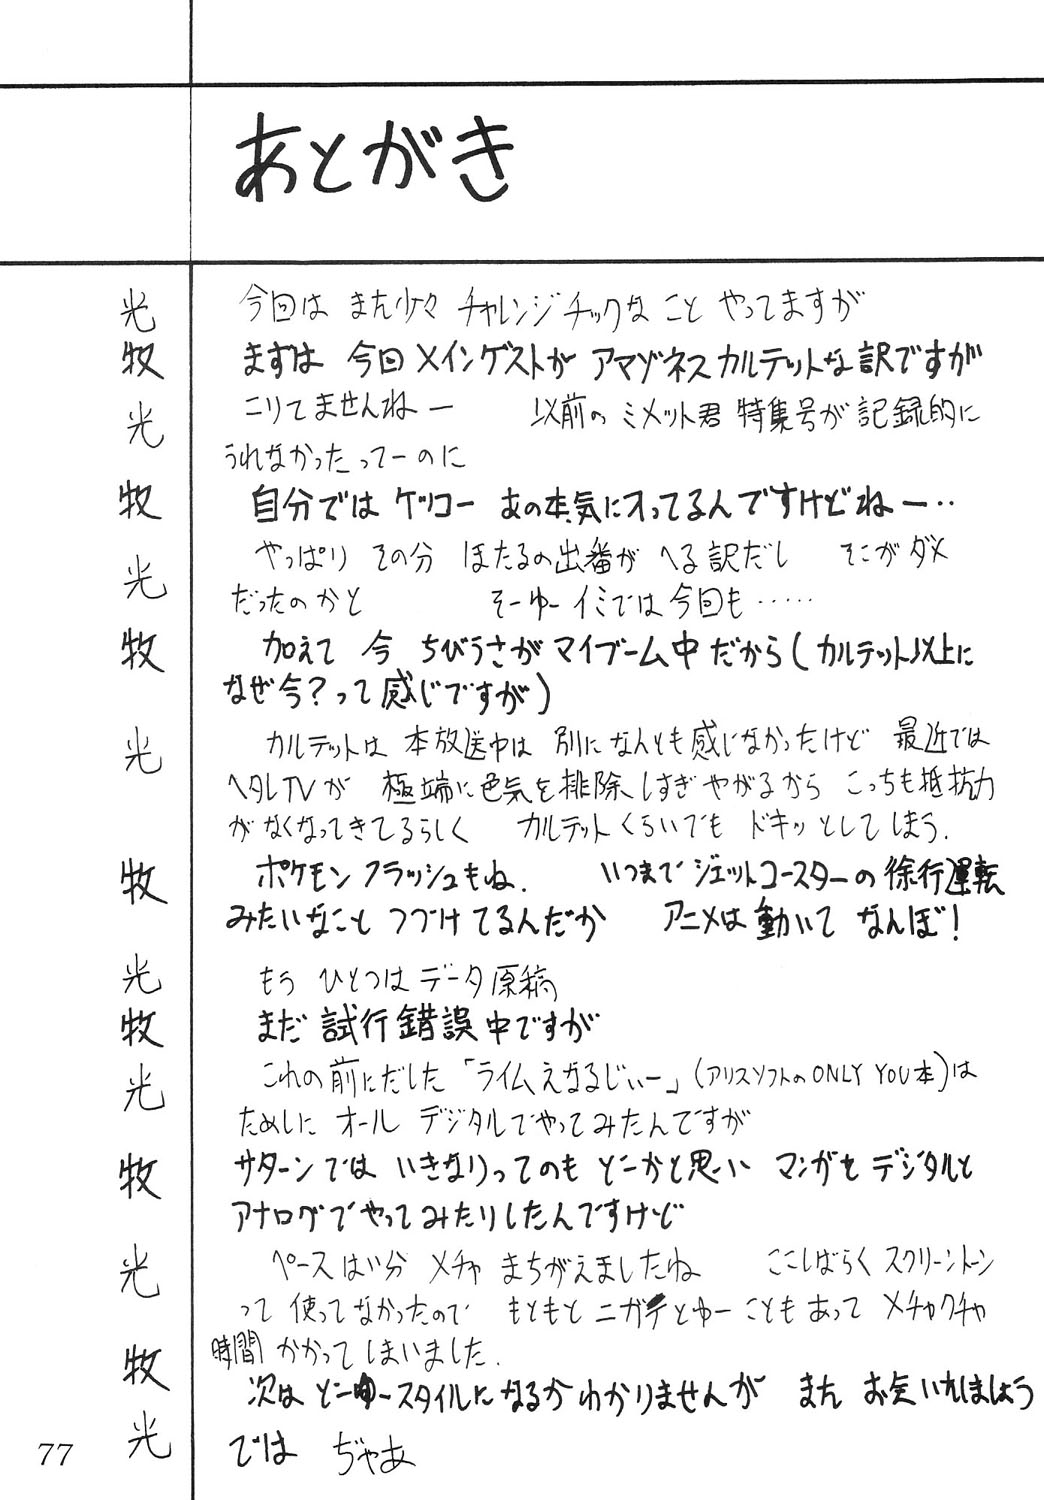 あとがき
光 今回は また少々 チャレンジチックな こと やってますが
牧 まずは 今回メインゲストが アマゾネスカルテットな訳ですが
光 こりてませんねー 以前の ミメット君 特集号が 記録的に
うれなかったってーのに
牧 自分では ケッコー あの本気に入ってるんですけどねー‥
光 やっぱり その分 ほたるの出番が へる訳だし そこがダメ
だったのかと そーゆーイミでは今回も‥‥‥
牧 加えて 今 ちびうさがマイブーム中だから(カルテット以上に
なぜ今?って感じですが)
光 カルテットは 本放送中は 別になんとも感じなかったけど 最近では
ヘタレTVが 極端に色気を排除しすぎやがるから こっちも抵抗力
がなくなってきてるらしく カルテットくらいでも ドキッとしてしまう.
牧 ポケモン フラッシュもね. いつまでジェットコースターの徐行運転
みたいなこと つづけてるんだか アニメは動いて なんぼ!
光 もう ひとつはデータ原稿
牧 まだ 試行錯誤中ですが
光 これの前にだした「ライムえなるじぃー」(アリスソフトのONLY YOU本)は
ためしに オール デジタルでやってみたんですが
牧 サターンでは いきなりってのも どーかと思い マンガを デジタルと
アナログでやってみたりしたんですけど
光 ペースはい分 メチャ まちがえましたね ここしばらく スクリーントーン
って 使ってなかったので もともと ニガテとゆー こともあって メチャクチャ
時間 かかってしまいました.
牧 次は どーゆースタイルになるかわかりませんが また お会いしましょう
光 では ぢゃあ
77